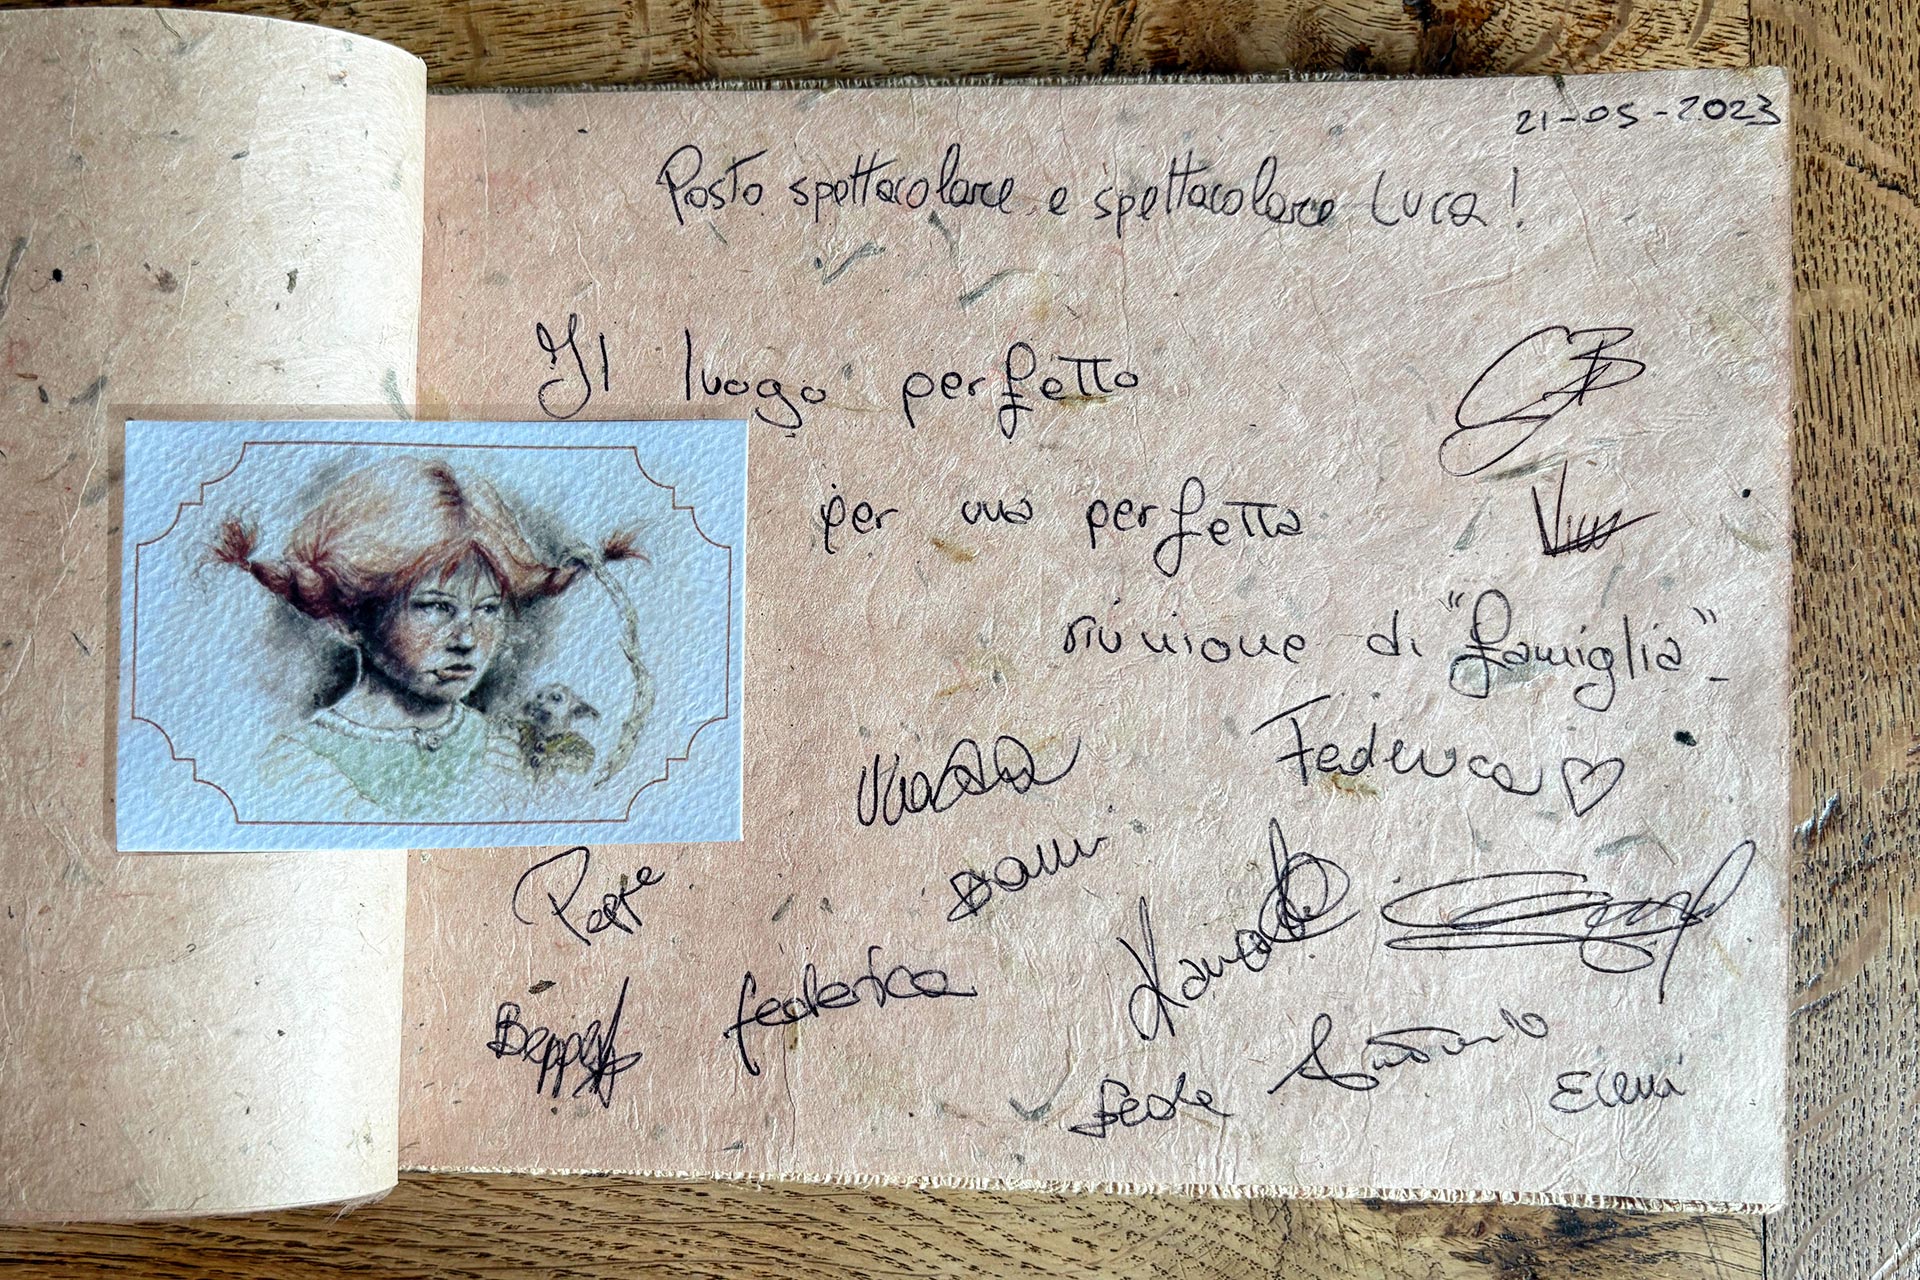 21-05-2023
Posto spettacolare e spettacolare Luca!
Il luogo perfetto
per una perfetta
riunione di "famiglia"
Federica
Danni
federica
Beppe
fede Antonio
Eleni